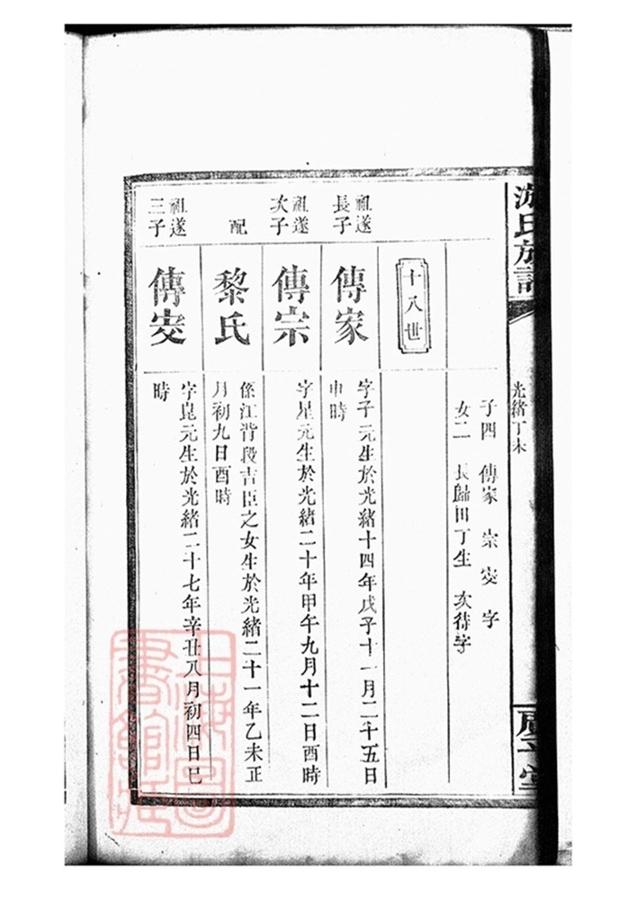 游氏族譜
光緒丁未
子四 傳家 宗 安 字
女二 長歸田丁生 次待字
十八世
祖遂
長子
傳家
字子元生於光緒十四年戊子十一月二十五日
申時
祖遂
次子
傳宗
字星元生於光緒二十年甲午九月十二日酉時
配
黎氏
係江背段吉臣之女生於光緒二十一年乙未正
月初九日酉時
祖遂
三子
傳安
字崑元生於光緒二十七年辛丑八月初四日巳
時
上海圖
書館藏